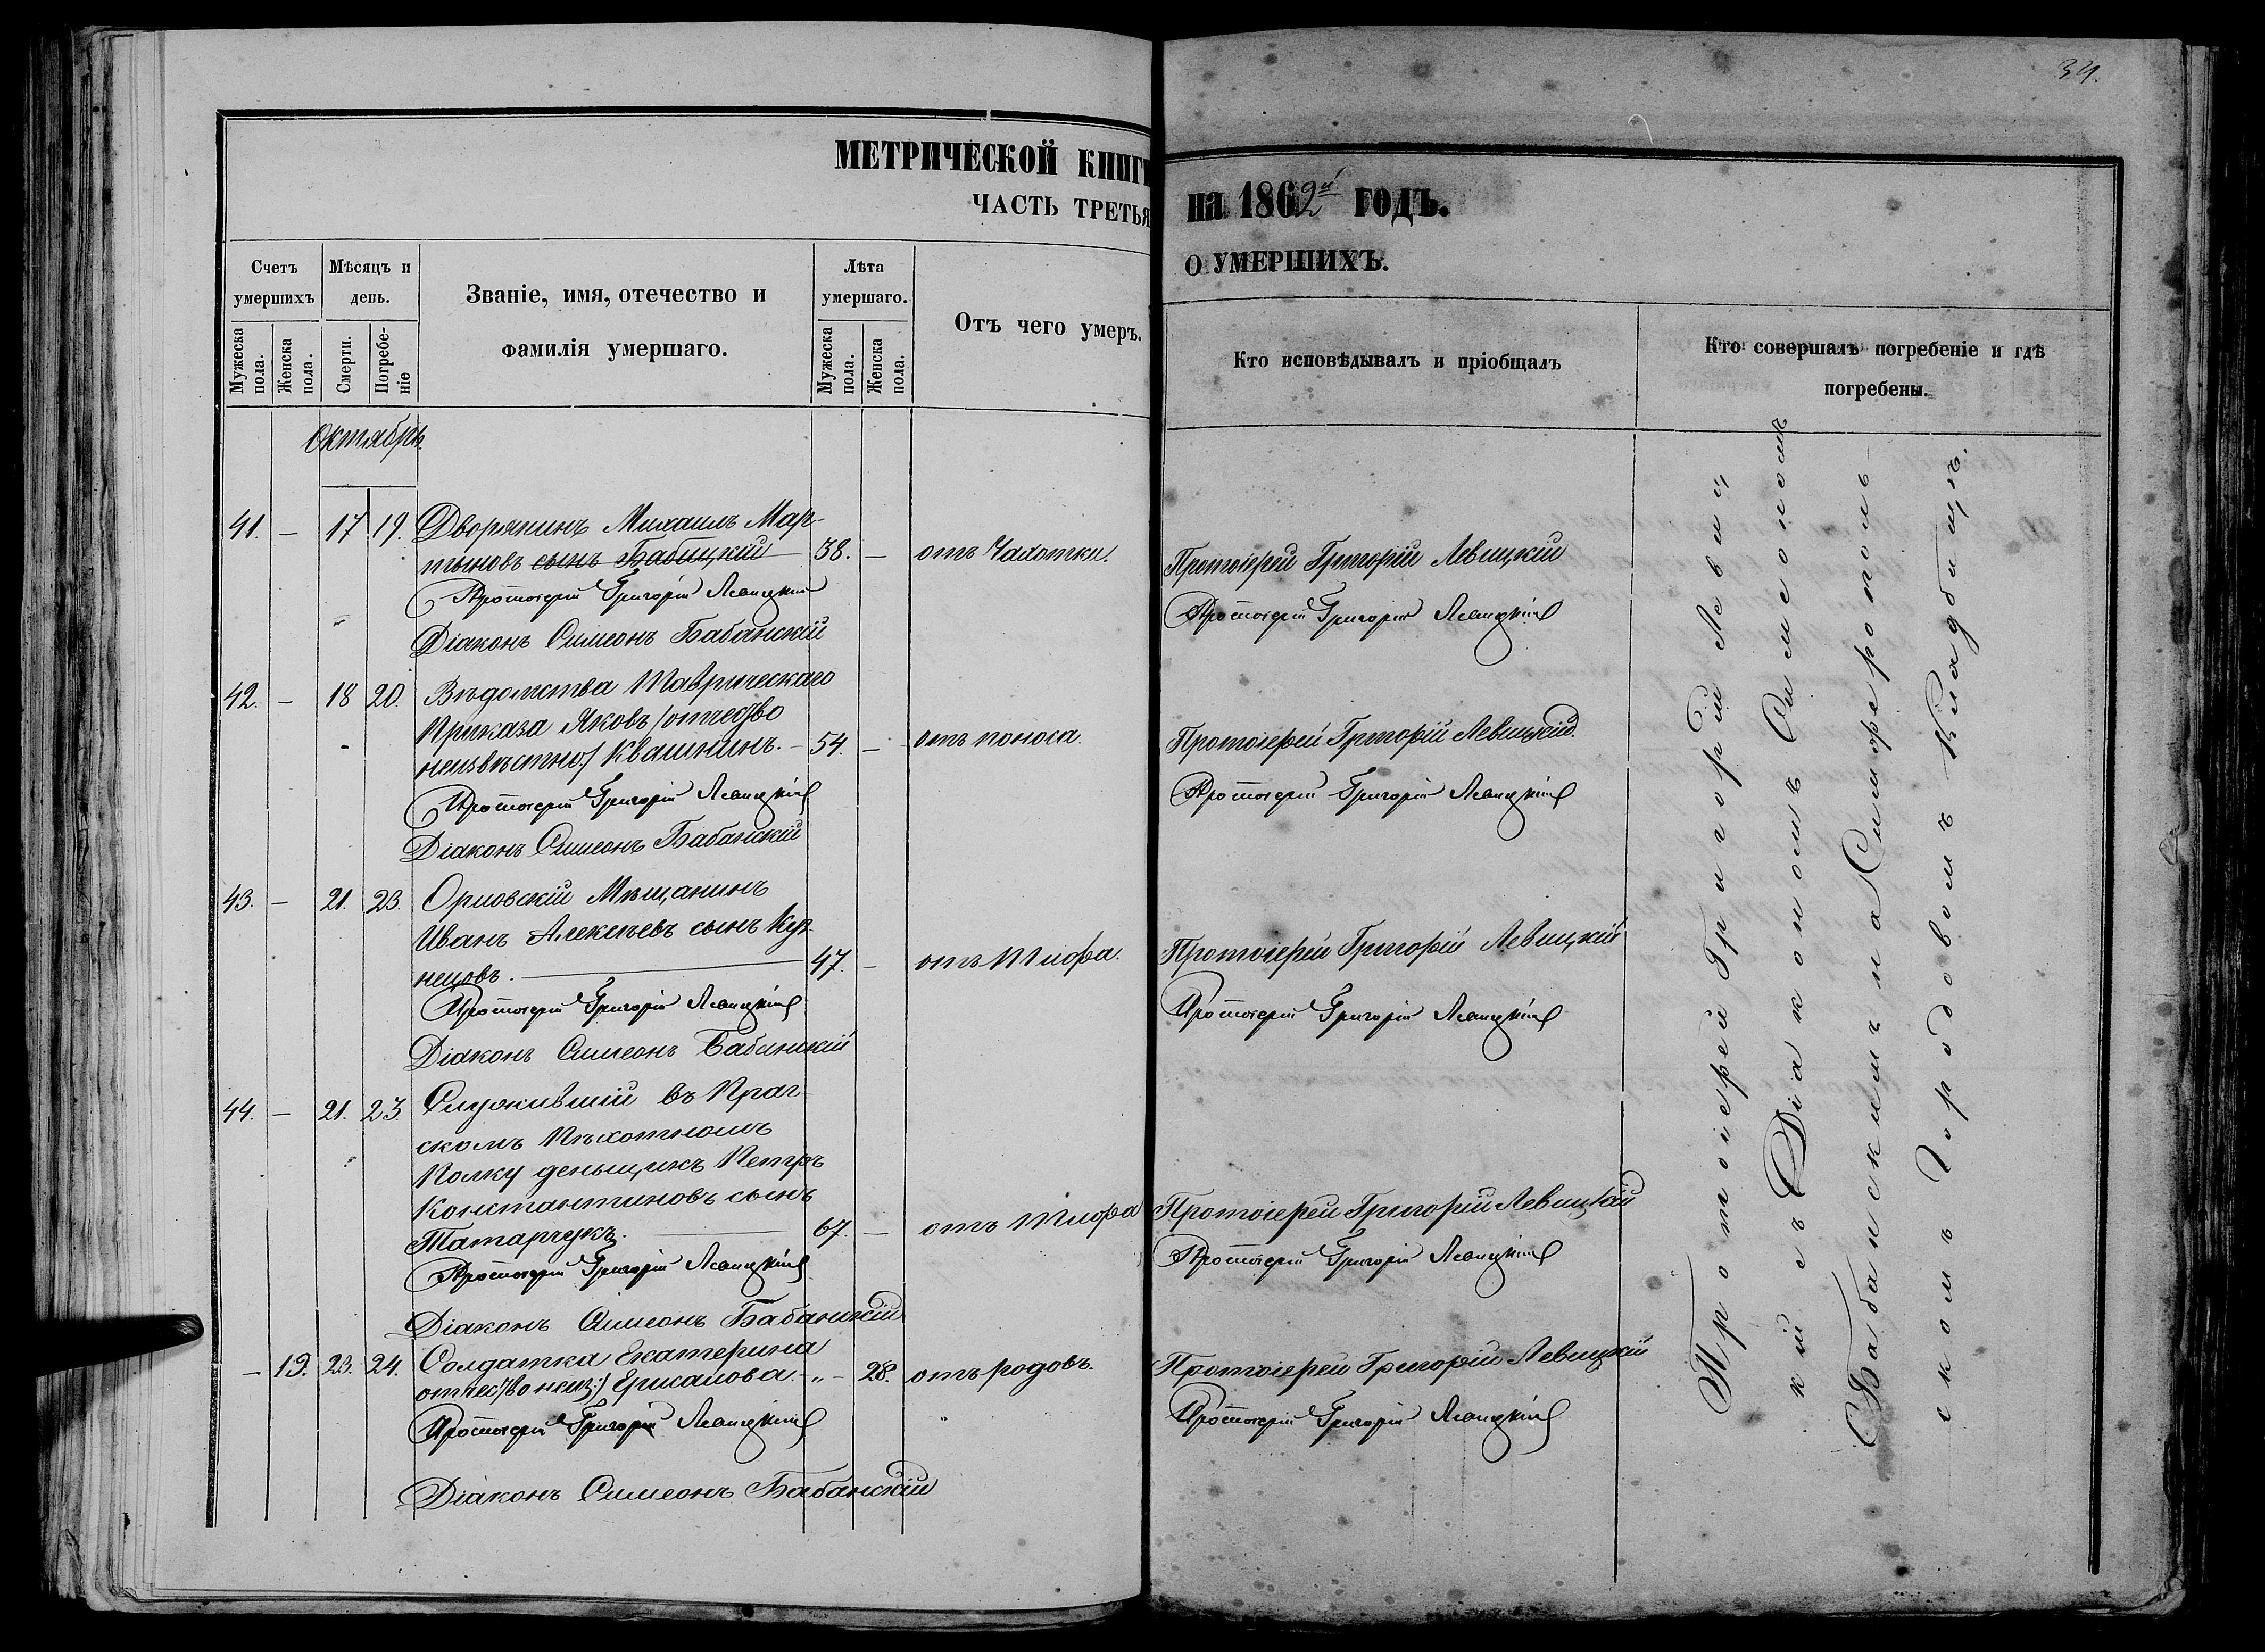 34.
МЕТРИЧЕСКОЙ КНИГИ
на 1862й годъ.
ЧАСТЬ ТРЕТЬЯ
О УМЕРШИХЪ.
Счетъ умершихъ
Мѣсяцъ и день.
Званіе, имя, отечество и
фамилія умершаго.
Лѣта умершаго.
Отъ чего умеръ.
Кто исповѣдывалъ и пріобщалъ
Кто совершалъ погребеніе и гдѣ
погребены.
Мужеска пола.
Женска пола.
Смерти.
Погребе-ніе
Мужеска пола.
Женска пола.
Октябрь.
41. — 17 19. Дворянинъ Михаилъ Мар-
тыновъ сынъ Бабицкій 38. — отъ Чахотки. Протоіерей Григорій Левицкій
Протоіерей Григорій Левицкій
Протоіерей Григорій Левицкій
Діаконъ Симеонъ Бабанскій
42. — 18 20. Вѣдомства Таврическаго
Приказа Яковъ /отчество
неизвѣстно/ Квашнинъ. — 54. — отъ поноса. Протоіерей Григорій Левицкій.
Протоіерей Григорій Левицкій
Протоіерей Григорій Левицкій
Діаконъ Симеонъ Бабанскій
43. — 21. 23. Орловскій Мѣщанинъ
Иванъ Алексѣевъ сынъ Куз-
нецовъ. 47. — отъ Тифа. Протоіерей Григорій Левицкій
Протоіерей Григорій Левицкій
Протоіерей Григорій Левицкій
Діаконъ Симеонъ Бабанскій
44. — 21. 23 Служившій въ Праг-
скомъ Пѣхотномъ
Полку деньщикъ Петръ
Константиновъ сынъ
Татарчукъ. 67. — отъ Тифа Протоіерей Григорій Левицкій
Протоіерей Григорій Левицкій
Протоіерей Григорій Левицкій
Діаконъ Симеонъ Бабанскій
— 19. 23. 24. Солдатка Екатерина
отчес/во неиз:/ — „ — 28. отъ родовъ. Протоіерей Григорій Левицкій
Протоіерей Григорій Левицкій
Протоіерей Григорій Левицкій
Діаконъ Симеонъ Бабанскій
Протоіерей Григорій Левиц
кій съ Діакономъ Симеономъ
Бабанскимъ на Симферополь-
скомъ Городовомъ Кладбищѣ.